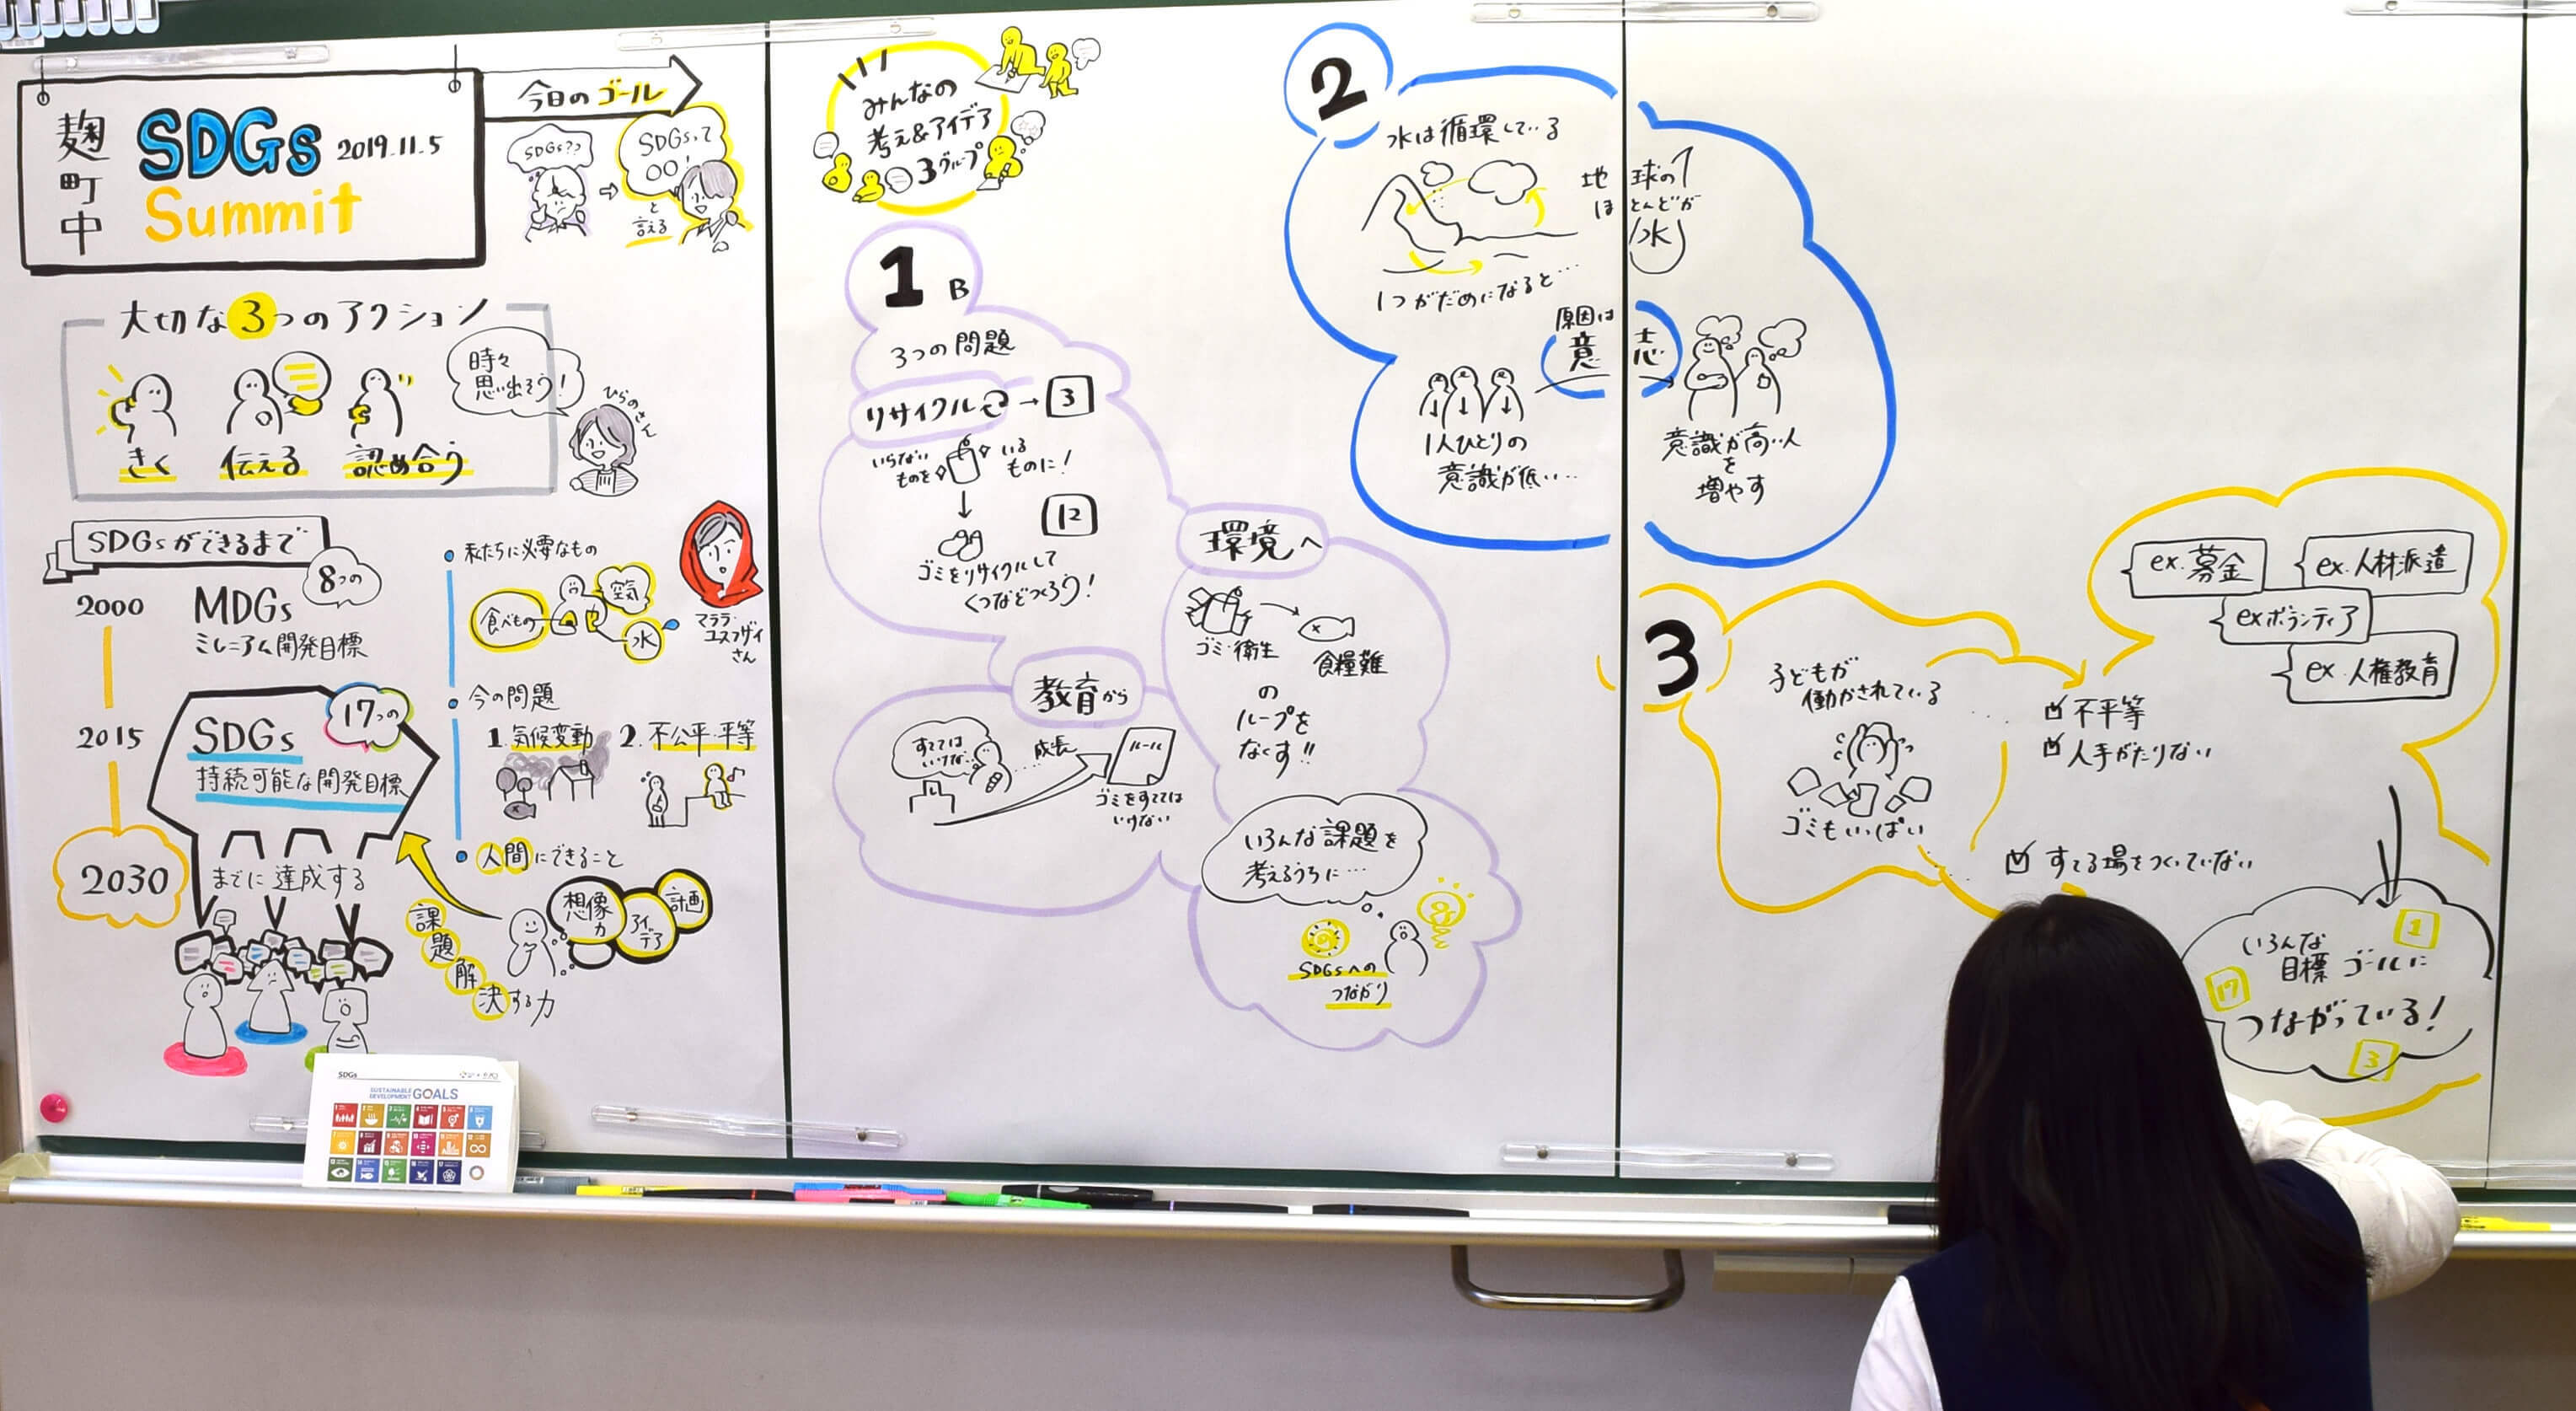 麹町中
SDGs 2019.11.5
Summit
今日のゴール
SDGs??
SDGsって
○○!
と
言える
大切な3つのアクション
きく
伝える
認め合う
時々
思い出そう!
ひらのさん
SDGsができるまで
2000
8つの
MDGs
ミレニアム開発目標
2015
17つの
SDGs
持続可能な開発目標
2030
までに達成する
私たちに必要なもの
食べもの
空気
水
マララ・
ユスフザイ
さん
今の問題
1. 気候変動
2. 不公平・平等
人間にできること
想像
力
アイ
デア
計画
課題解決する力
SDGs
SUSTAINABLE
DEVELOPMENT GOALS
みんなの
考え&アイデア
3グループ
1 B
3つの問題
リサイクル → 3
いらない
ものを
いる
ものに!
12
ゴミをリサイクルして
くつなどつくろう!
環境へ
ゴミ・衛生
食糧難
の
ループを
なくす!!
教育から
すてては
いけない
成長
ルール
ゴミをすてては
いけない
いろんな課題を
考えるうちに…
SDGsへの
つながり
2
水は循環している
地球の
ほとんどが
水
1つがだめになると…
原因は
意志
1人ひとりの
意識が低い…
意識が高い人
を
増やす
3
子どもが
働かされている
ゴミもいっぱい
不平等
人手がたりない
すてる場をつくっていない
ex.募金
ex.人材派遣
exボランティア
ex.人権教育
いろんな
目標 ゴールに
つながっている!
1
17
3